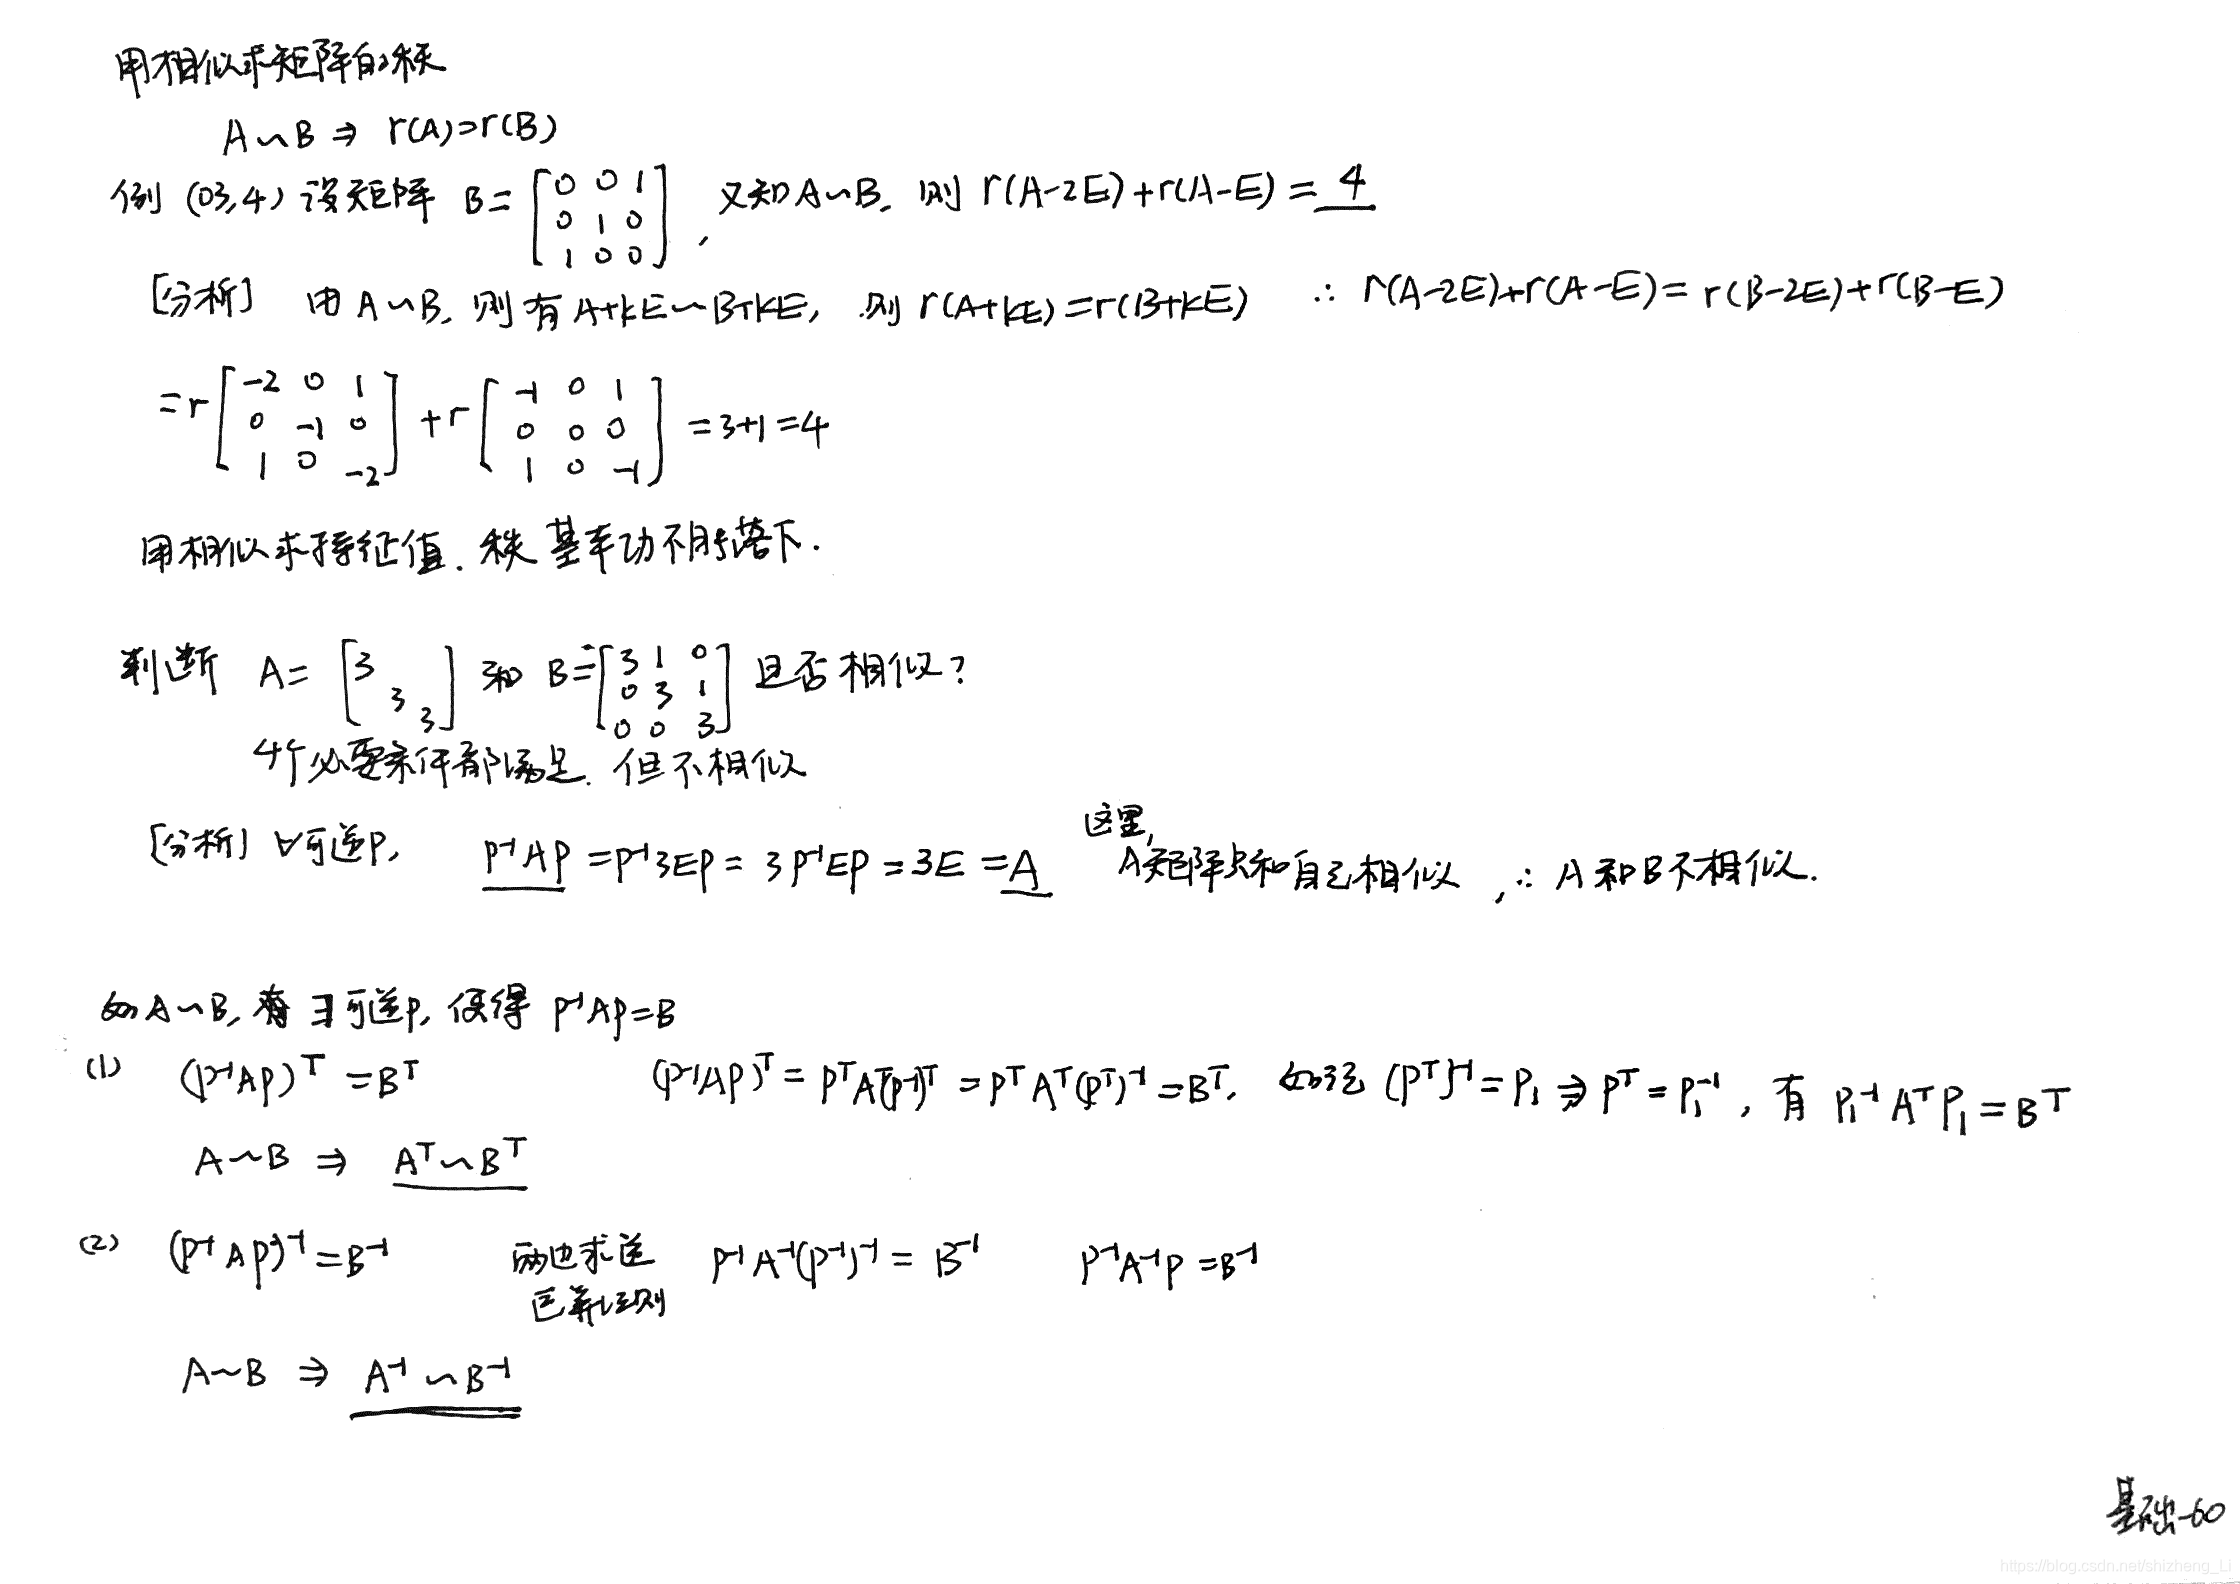 用相似求矩阵的秩
A∽B ⇒ r(A)=r(B)
例 (03,4) 设矩阵 B= [0 0 1; 0 1 0; 1 0 0], 又知 A∽B, 则 r(A-2E)+r(A-E)= 4
[分析] 由 A∽B, 则有 A+kE∽B+kE, 则 r(A+kE)=r(B+kE) ∴ r(A-2E)+r(A-E)= r(B-2E)+r(B-E)
=r [-2 0 1; 0 -1 0; 1 0 -2] +r [-1 0 1; 0 0 0; 1 0 -1] =3+1=4
用相似求特征值. 秩 基本功不能落下.
判断 A= [3 3 3] 和 B= [3 1 0; 0 3 1; 0 0 3] 是否相似?
4个必要条件都满足. 但不相似
[分析] ∀可逆P, P⁻¹AP =P⁻¹3EP= 3P⁻¹EP=3E =A 这里, A矩阵只和自己相似, ∴ A和B不相似.
如A∽B, 有∃可逆P, 使得 P⁻¹AP=B
(1) (P⁻¹AP)ᵀ =Bᵀ (P⁻¹AP)ᵀ= PᵀAᵀ(P⁻¹)ᵀ =PᵀAᵀ(Pᵀ)⁻¹=Bᵀ. 如记 (Pᵀ)⁻¹=P₁ ⇒ Pᵀ=P₁⁻¹, 有 P₁⁻¹AᵀP₁=Bᵀ
A∽B ⇒ Aᵀ∽Bᵀ
(2) (P⁻¹AP)⁻¹=B⁻¹ 两边求逆 P⁻¹A⁻¹(P⁻¹)⁻¹= B⁻¹ P⁻¹A⁻¹P=B⁻¹
法则
A∽B ⇒ A⁻¹∽B⁻¹
基础-60
https://blog.csdn.net/shizheng_Li